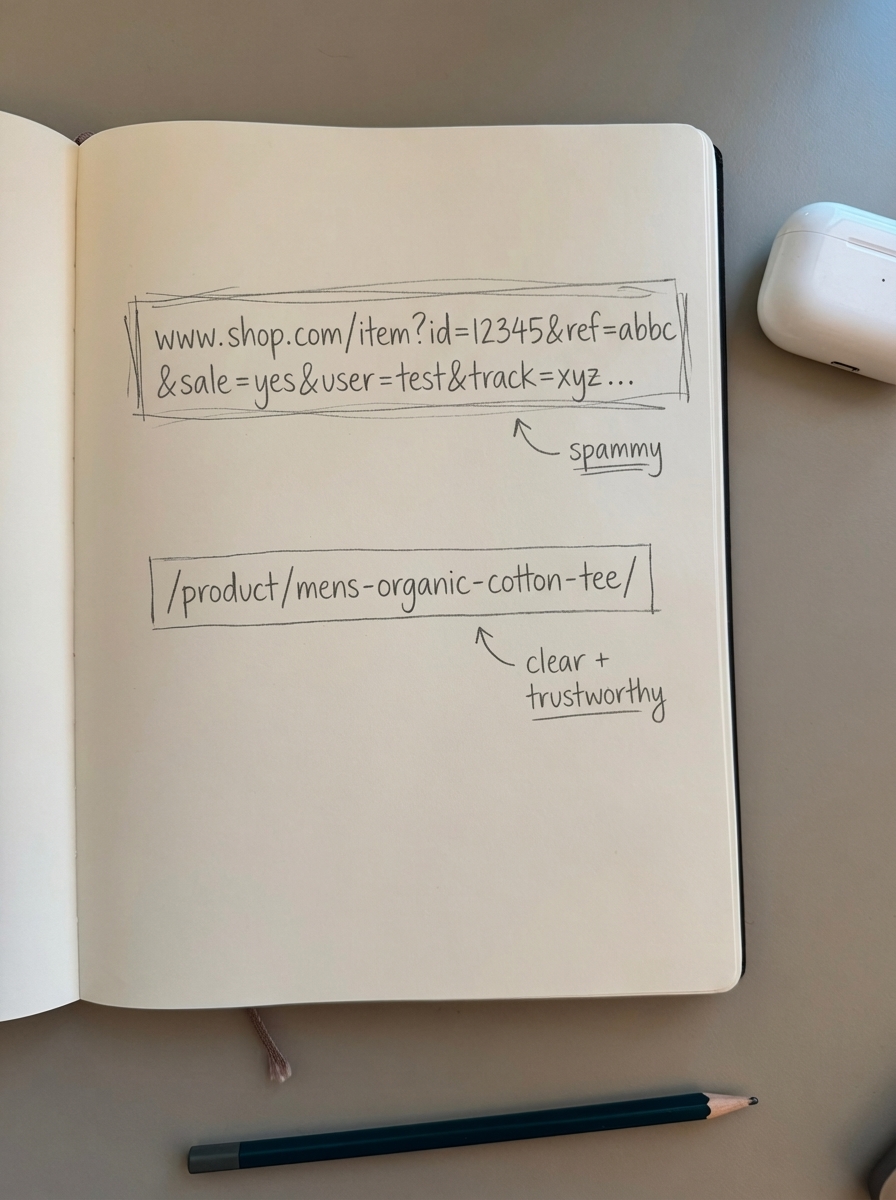 www.shop.com/item?id=12345&ref=abbc
&sale=yes&user=test&track=xyz...
spammy
/product/mens-organic-cotton-tee/
clear +
trustworthy